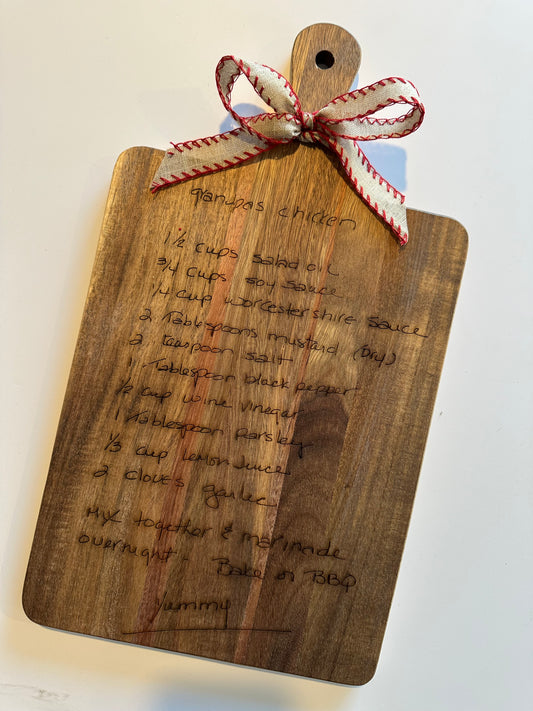 grandpas chicken
1 1/2 cups salad oil
3/4 cups soy sauce
1/4 cup worcestershire sauce
2 Tablespoons mustard (Dry)
2 teaspoon salt
1 Tablespoon black pepper
1/2 cup wine vinegar
1 Tablespoon parsley
1/3 cup lemon juice
2 cloves garlic
Mix together & marinade
overnight - Bake or BBQ
Yummy